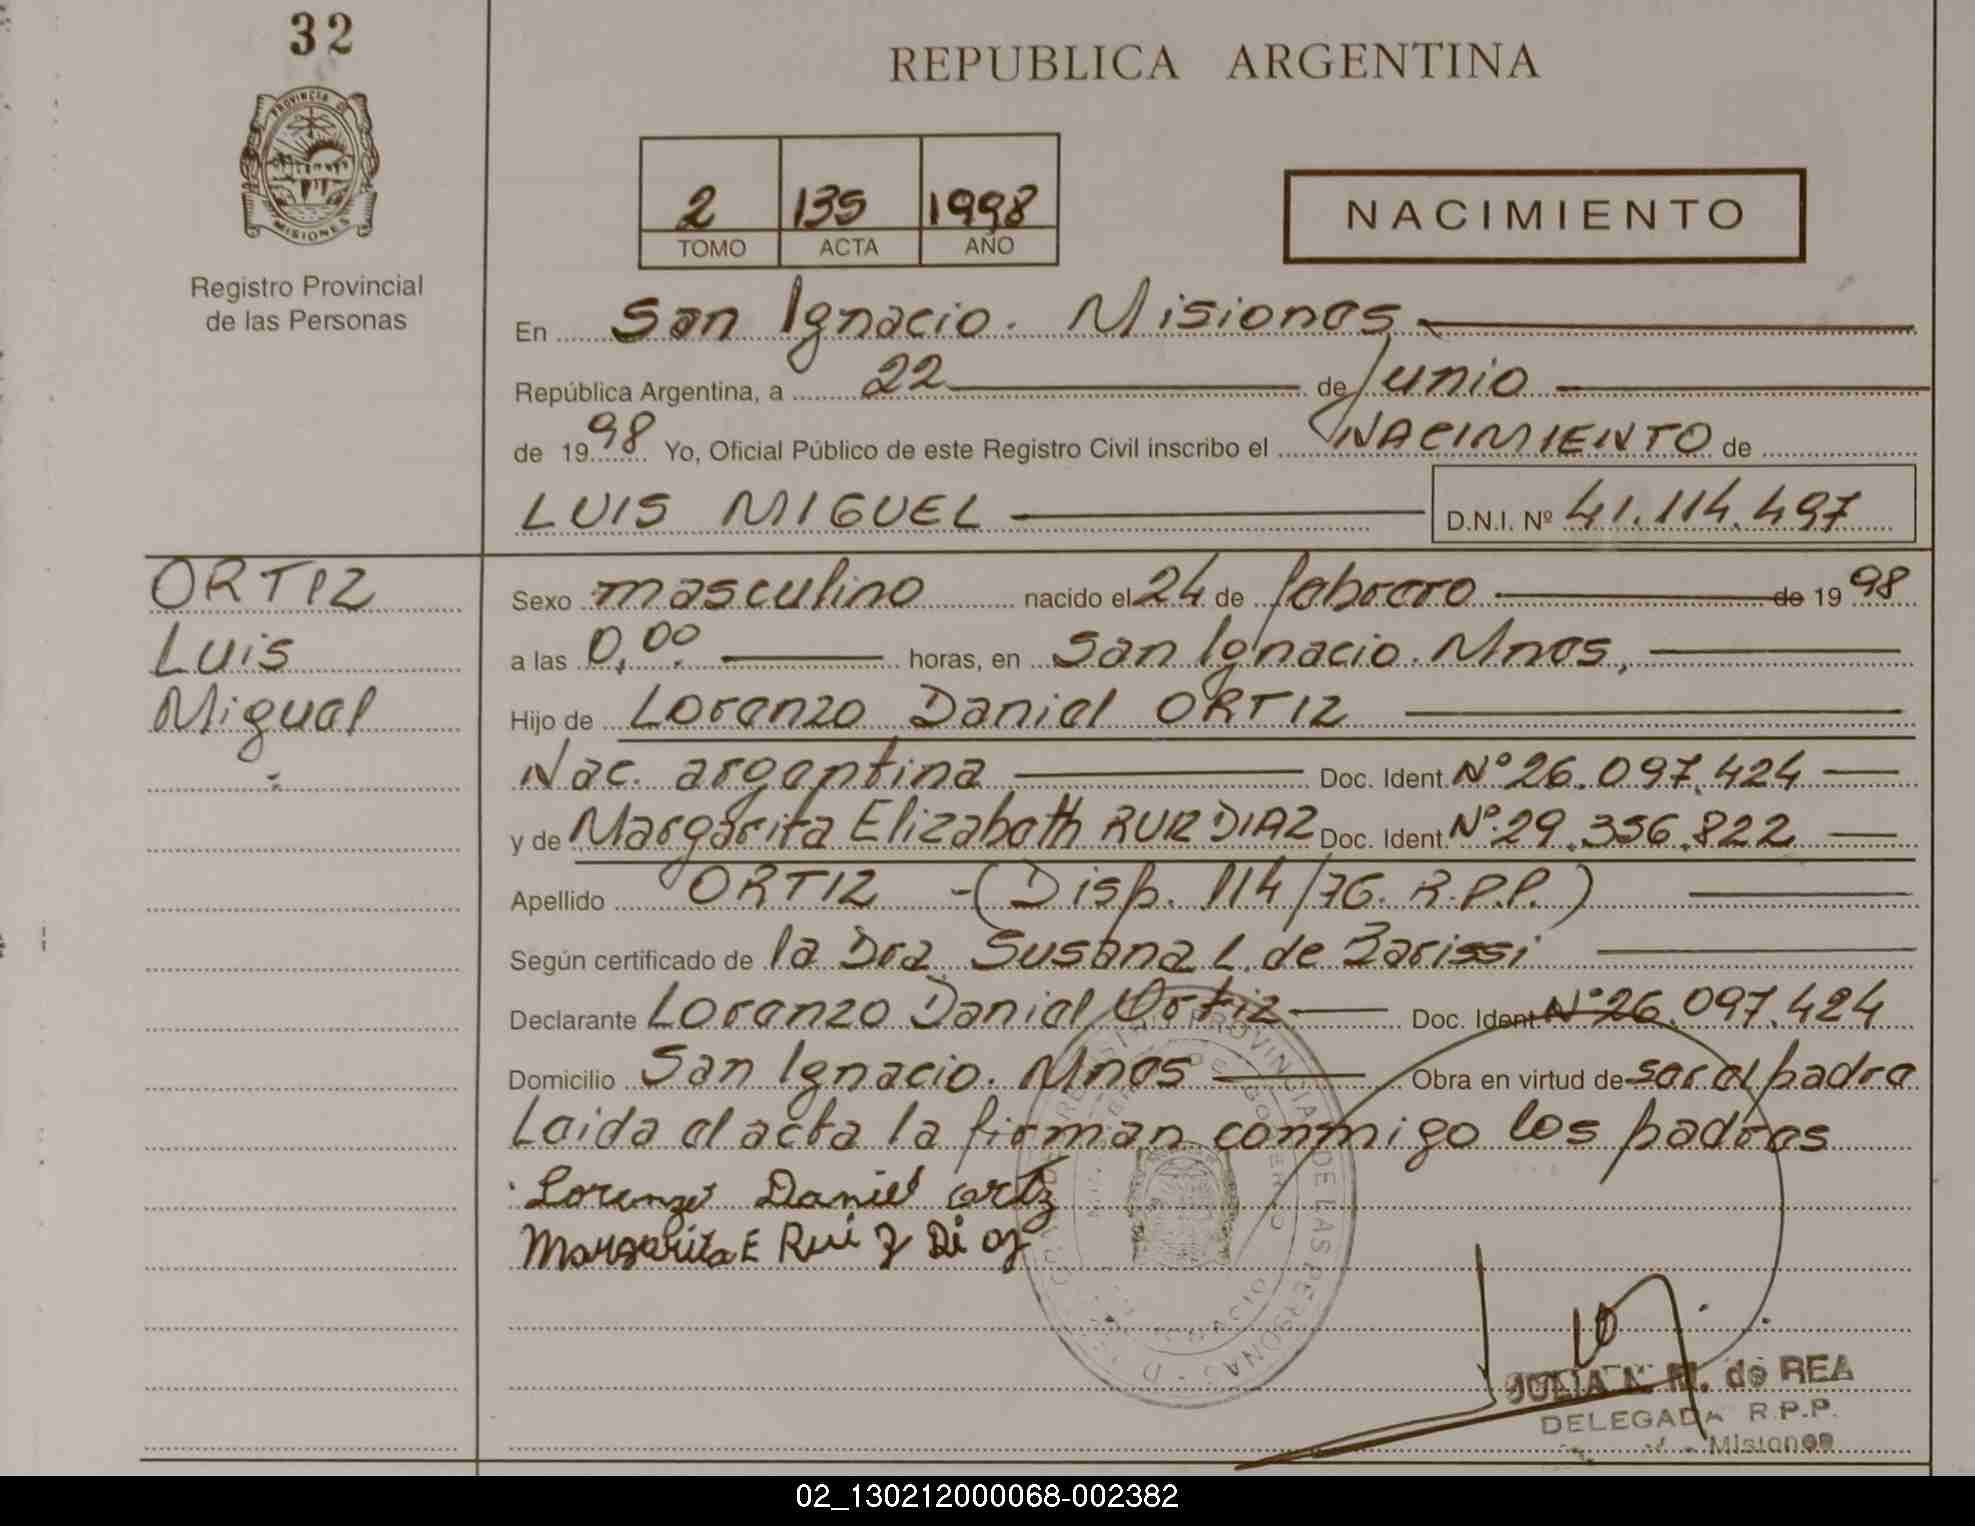 32
PROVINCIA DE
MISIONES
Registro Provincial
de las Personas
REPUBLICA ARGENTINA
2 135 1998
TOMO ACTA AÑO
NACIMIENTO
En San Ignacio. Misiones
República Argentina, a 22 de Junio
de 1998 Yo, Oficial Público de este Registro Civil inscribo el NACIMIENTO de
LUIS MIGUEL D.N.I. Nº 41.114.497
ORTIZ
Luis
Miguel
Sexo masculino nacido el 24 de febrero de 1998
a las 0,00 horas, en San Ignacio. Mnes,
Hijo de Lorenzo Daniel ORTIZ
Nac. argentina Doc. Ident. Nº 26.097.424
y de Margarita Elizabeth RUIZ DIAZ Doc. Ident. Nº 29.356.822
Apellido ORTIZ -(Disp. 114/76. R.P.P.)
Según certificado de la Dra Susana L. de Barissi
Declarante Lorenzo Daniel Ortiz Doc. Ident. Nº 26.097.424
Domicilio San Ignacio. Mnes Obra en virtud de ser el padre
Leida el acta la firman conmigo los padres
Lorenzo Daniel ortz
Margarita E Rui z Di az
REGISTRO PROVINCIAL DE LAS PERSONAS
JULIA N. M. de REA
DELEGADA R.P.P.
Misiones
02_130212000068-002382